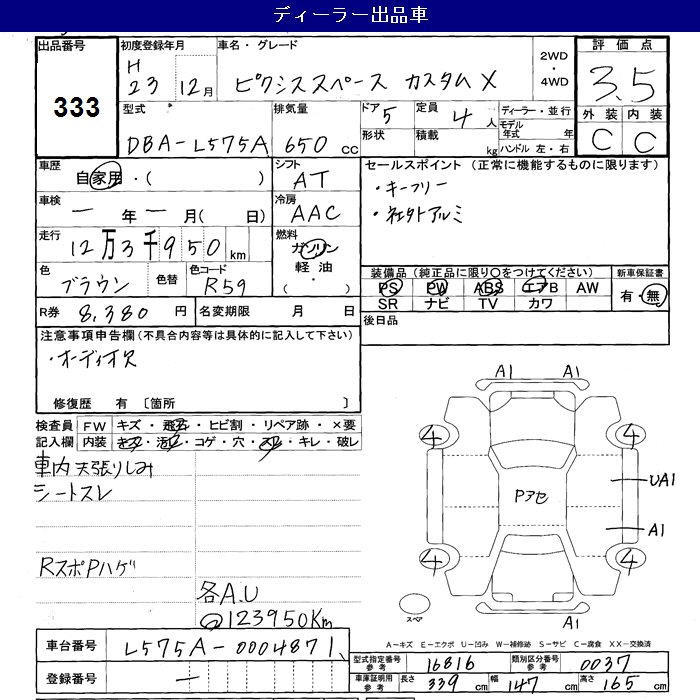 ディーラー出品車
出品番号
333
初度登録年月
H
23 12月
車名・グレード
ピクシススペース カスタムX
2WD
・
4WD
評価点
3.5
外装 内装
C C
型式
DBA-L575A
排気量
650cc
ドア
5
形状
定員
4人
積載
kg
ディーラー・並行
モデル年式 年
ハンドル 左・右
車歴
自家用・( )
シフト
AT
セールスポイント(正常に機能するものに限ります)
・キーフリー
・社外アルミ
車検
ー年ー月( 日)
冷房
AAC
走行
12万3千950km
燃料
ガソリン
軽油
( ・ )
色
ブラウン
色替
色コード
R59
装備品(純正品に限り○をつけてください)
PS PW ABS エアB AW
SR ナビ TV カワ
新車保証書
有・無
R券 8,380円
名変期限 月 日
後日品
注意事項申告欄(不具合内容等は具体的に記入して下さい)
・オーディオレス
修復歴 有〔箇所 〕
検査員記入欄
FW キズ・飛石・ヒビ割・リペア跡・×要
内装 キズ・汚レ・コゲ・穴・スレ・キレ・破レ
車内天張りしみ
シートスレ
RスポPハゲ
各A.U
@123950Km
A1 A1
4 4
UA1
Pアセ
A1
4 4
スペア
A1
A-キズ E-エクボ U-凹み W-補修跡 S-サビ C-腐食 XX-交換済
車台番号 L575A-0004871
登録番号 ー
型式指定番号参考 16816 類別区分番号参考 0037
車庫証明用参考 長さ 339cm 幅 147cm 高さ 165cm